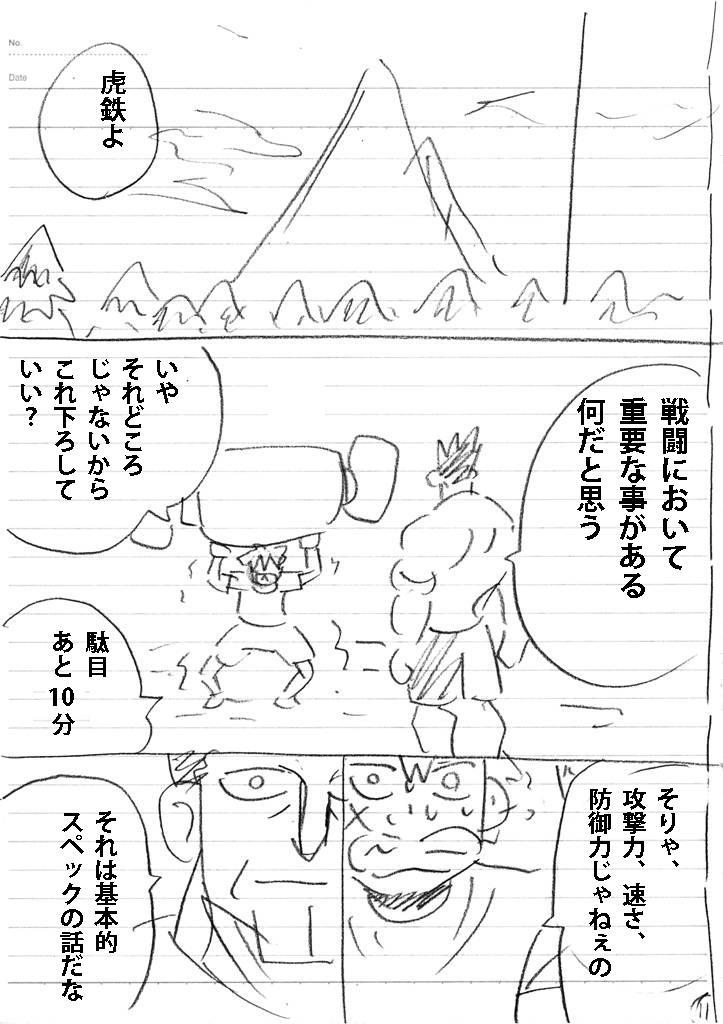 No.
Date
虎鉄よ
戦闘において
重要な事がある
何だと思う
いや
それどころ
じゃないから
これ下ろして
いい?
駄目
あと10分
そりゃ、
攻撃力、速さ、
防御力じゃねぇの
それは基本的
スペックの話だな
11